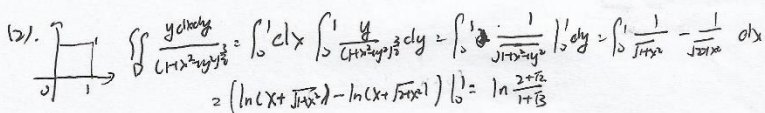 (2). 0 1 1 ∬_D ydxdy/(1+x²+y²)^{3/2} = ∫₀¹ dx ∫₀¹ y/(1+x²+y²)^{3/2} dy = ∫₀¹ 1/√(1+x²+y²) |₀¹ dy = ∫₀¹ 1/√(1+x²) - 1/√(2+x²) dx
= (ln(x+√(1+x²)) - ln(x+√(2+x²))) |₀¹ = ln (2+√2)/(1+√3)